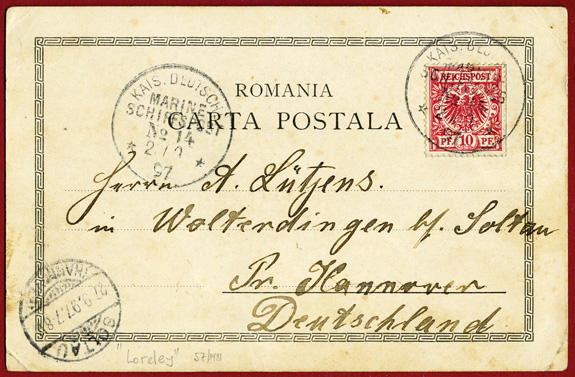 ROMANIA
CARTA POSTALA
KAIS. DEUTSCHE
MARINE
SCHIFFSPOST
No 14
97
KAIS. DEUT
REICHSPOST
PF 10 PF
Herrn A. Lütjens.
in Wolterdingen bf. Soltau
Pr. Hannover
Deutschland
SOLTAU
(HANNOVER)
27.9.97. 7-8
"Loreley"